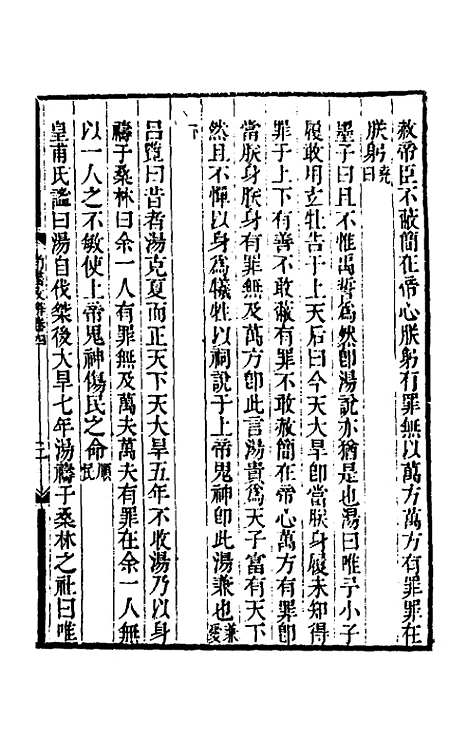 赦帝臣不蔽簡在帝心朕躬有罪無以萬方萬方有罪罪在
朕躬
墨子曰且不惟禹誓爲然卽湯說亦猶是也湯曰唯予小子
履敢用玄牡告于上天后曰今天大旱卽當朕身履未知得
罪于上下有善不敢蔽有罪不敢赦簡在帝心萬方有罪卽
當朕身朕身有罪無及萬方卽此言湯貴爲天子富有天下
然且不憚以身爲犧牲以祠說于上帝鬼神卽此湯兼也兼愛
下
呂覽曰昔者湯克夏而正天下天大旱五年不收湯乃以身
禱于桑林曰余一人有罪無及萬夫萬夫有罪在余一人無
以一人之不敏使上帝鬼神傷民之命順民
皇甫氏謐曰湯自伐桀後大旱七年湯禱于桑林之社曰唯